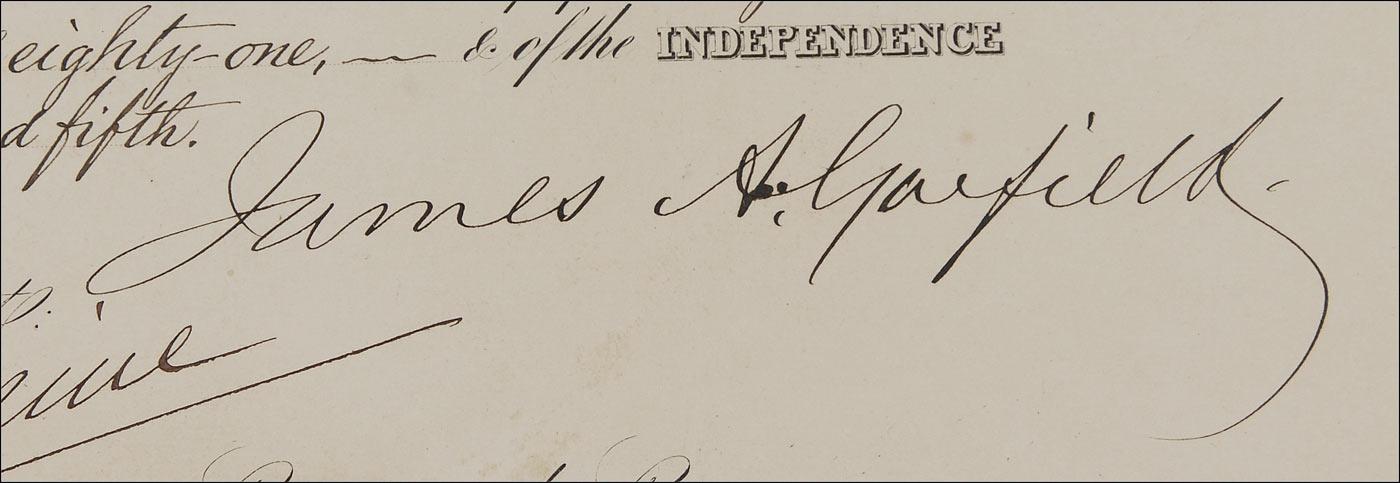 eighty-one, — & of the INDEPENDENCE
d fifth.
James A. Garfield